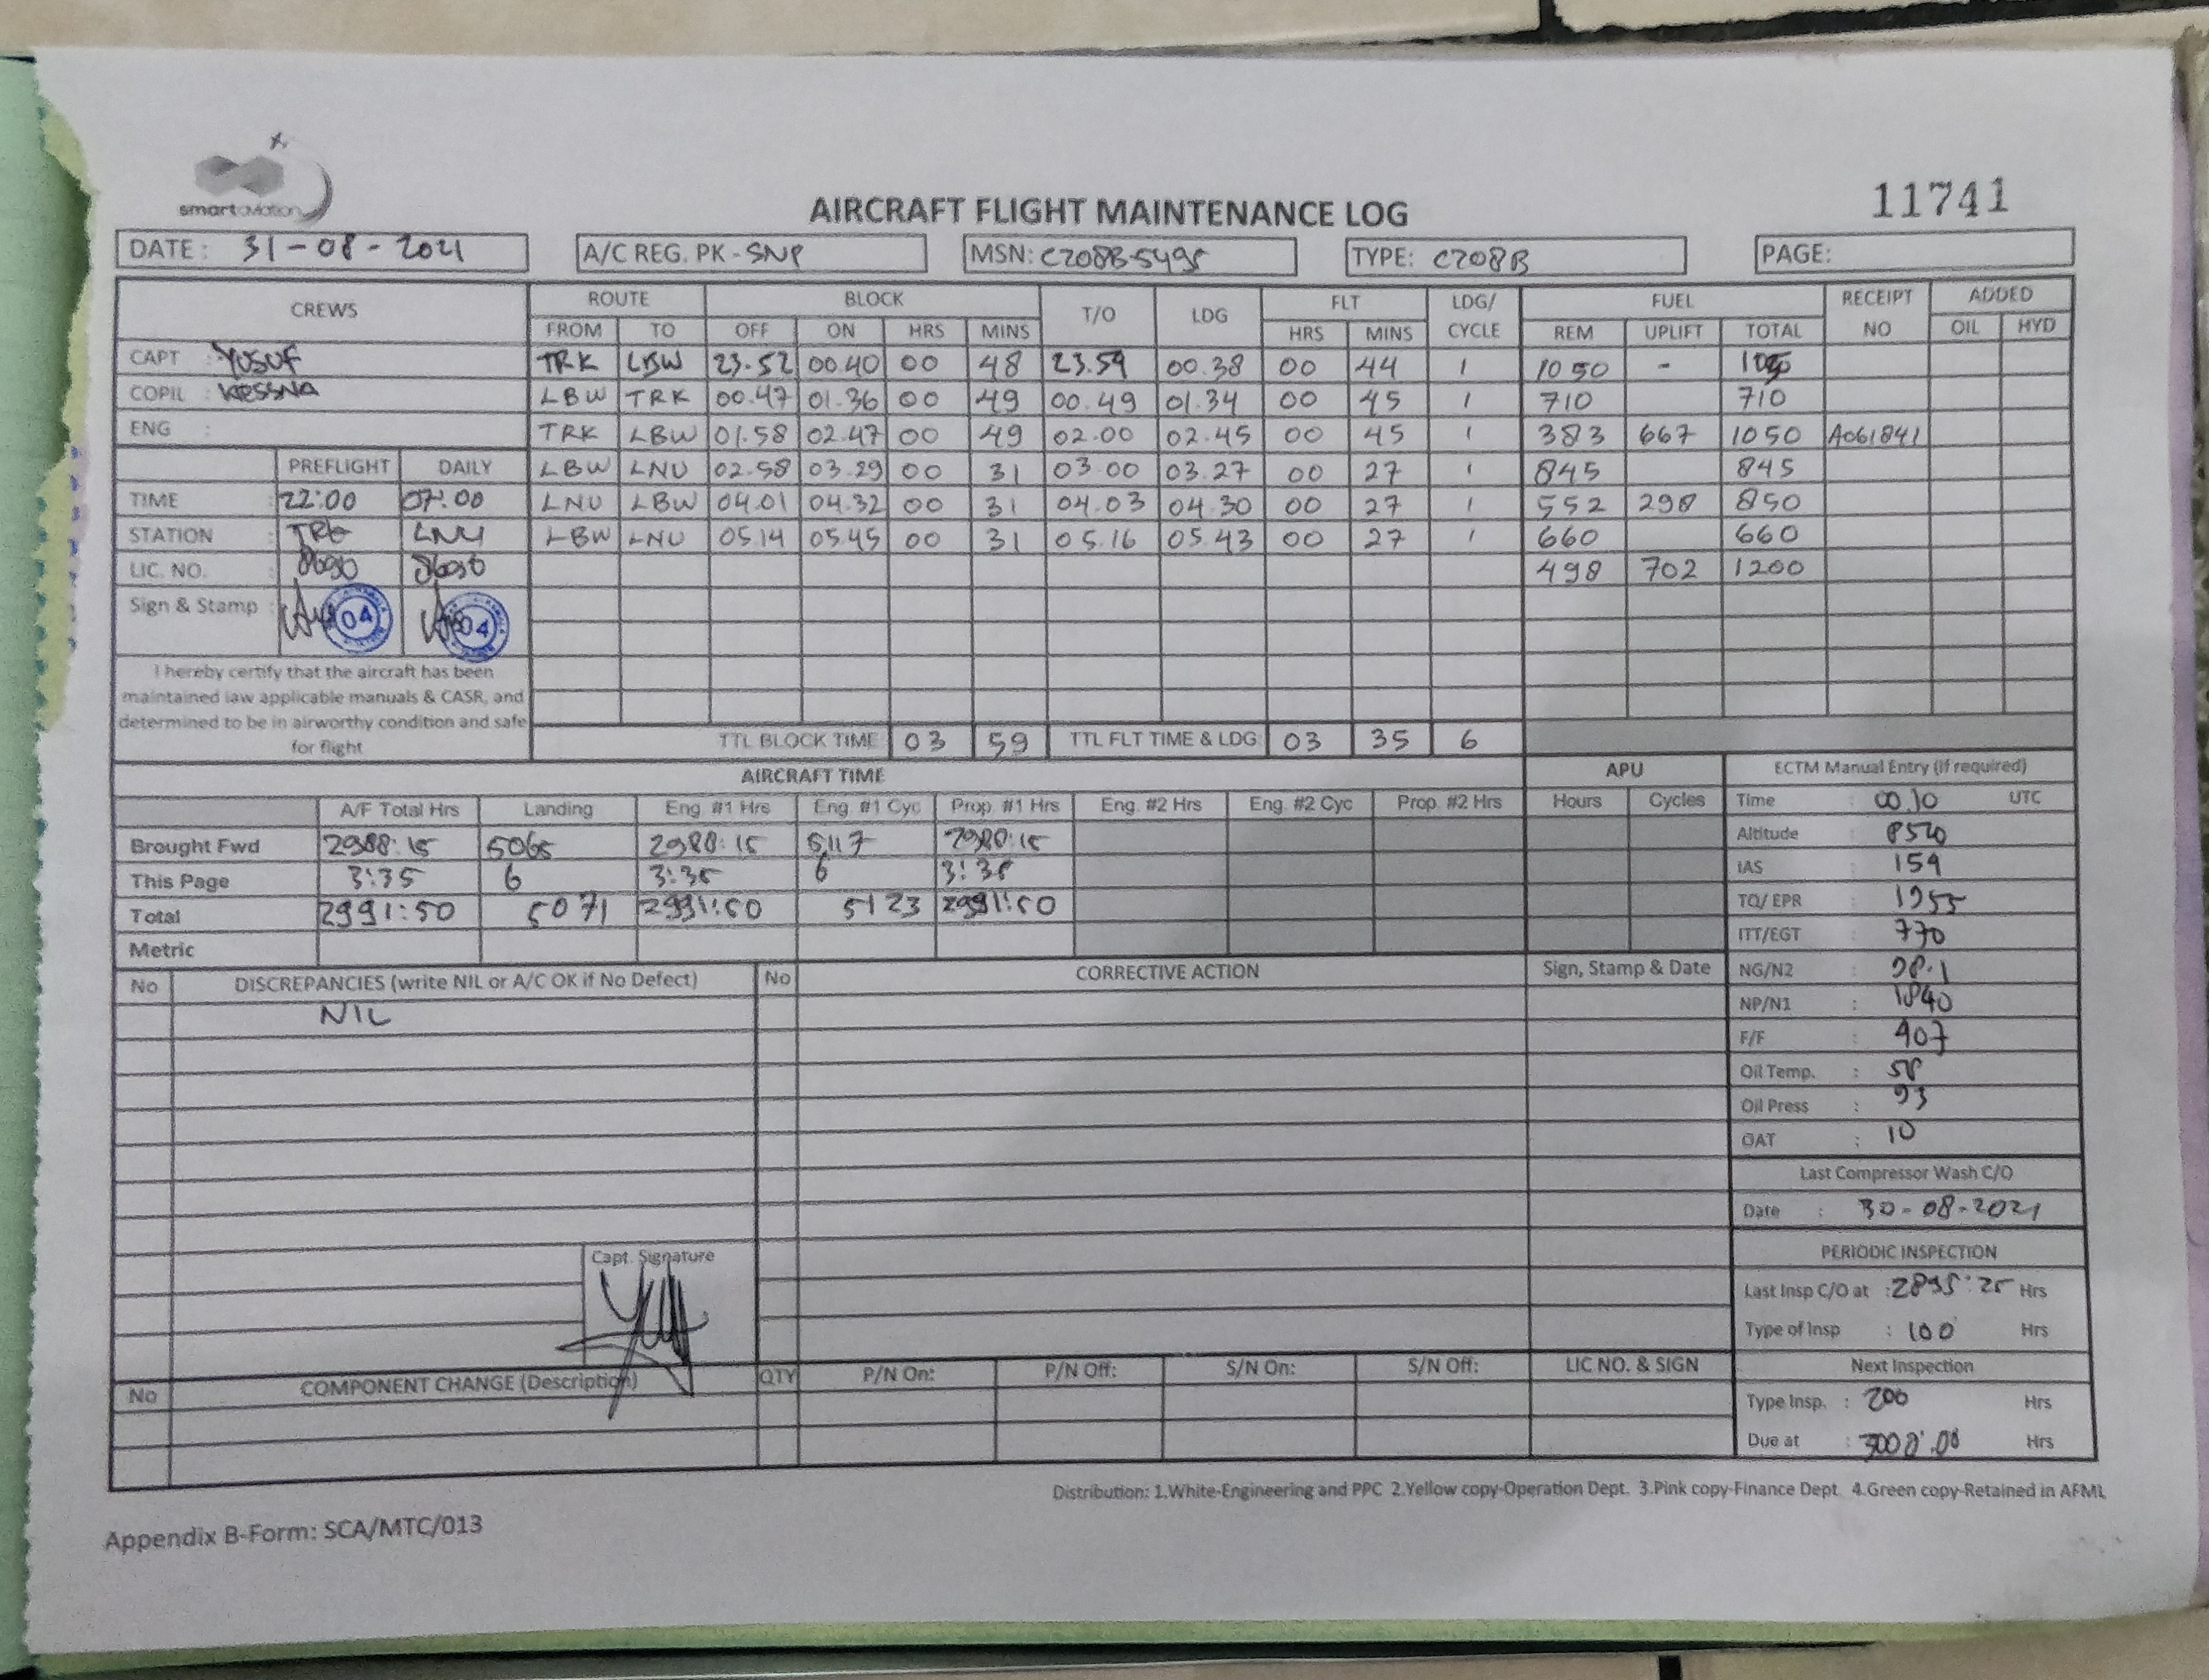 smart aviation
AIRCRAFT FLIGHT MAINTENANCE LOG
11741
DATE : 31-08-2021
A/C REG. PK - SNP
MSN: C208B5495
TYPE: C208B
PAGE:
CREWS ROUTE BLOCK T/O LDG FLT LDG/ CYCLE FUEL RECEIPT NO ADDED
FROM TO OFF ON HRS MINS HRS MINS REM UPLIFT TOTAL OIL HYD
CAPT : YUSUF TRK LBW 23.52 00.40 00 48 23.54 00.38 00 44 1 1050 -
COPIL : KRESSNA LBW TRK 00.47 01.36 00 49 00.49 01.34 00 45 1 710 710
ENG : TRK LBW 01.58 02.47 00 49 02.00 02.45 00 45 1 383 667 1050 A061841
PREFLIGHT DAILY LBW LNU 02.58 03.29 00 31 03.00 03.27 00 27 1 845 845
TIME : 22:00 07:00 LNU LBW 04.01 04.32 00 31 04.03 04.30 00 27 1 552 298 850
STATION : TRK LNU LBW LNU 05.14 05.45 00 31 05.16 05.43 00 27 1 660 660
LIC. NO. : 498 702 1200
Sign & Stamp : 04 04
I hereby certify that the aircraft has been
maintained iaw applicable manuals & CASR, and
determined to be in airworthy condition and safe
for flight
TTL BLOCK TIME 03 59 TTL FLT TIME & LDG 03 35 6
AIRCRAFT TIME APU
A/F Total Hrs Landing Eng. #1 Hrs Eng. #1 Cyc Prop. #1 Hrs Eng. #2 Hrs Eng. #2 Cyc Prop. #2 Hrs Hours Cycles
Brought Fwd 2988:15 5065 2988:15 5117 2988:15
This Page 3:35 6 3:35 6 3:35
Total 2991:50 5071 2991:50 5123 2991:50
Metric
ECTM Manual Entry (If required)
Time : 00.10 UTC
Altitude : 8520
IAS : 154
TQ/ EPR : 1355
ITT/EGT : 770
NG/N2 : 98.1
NP/N1 : 1840
F/F : 407
Oil Temp. : 58
Oil Press : 93
OAT : 10
Last Compressor Wash C/O
Date : 30-08-2021
PERIODIC INSPECTION
Last Insp C/O at : 2895:25 Hrs
Type of Insp : 100 Hrs
Next Inspection
Type Insp. : 200 Hrs
Due at : 3000:00 Hrs
No DISCREPANCIES (write NIL or A/C OK if No Defect) No CORRECTIVE ACTION Sign, Stamp & Date
NIL
Capt. Signature
No COMPONENT CHANGE (Description) QTY P/N On: P/N Off: S/N On: S/N Off: LIC NO. & SIGN
Distribution: 1.White-Engineering and PPC 2.Yellow copy-Operation Dept. 3.Pink copy-Finance Dept. 4.Green copy-Retained in AFML
Appendix B-Form: SCA/MTC/013